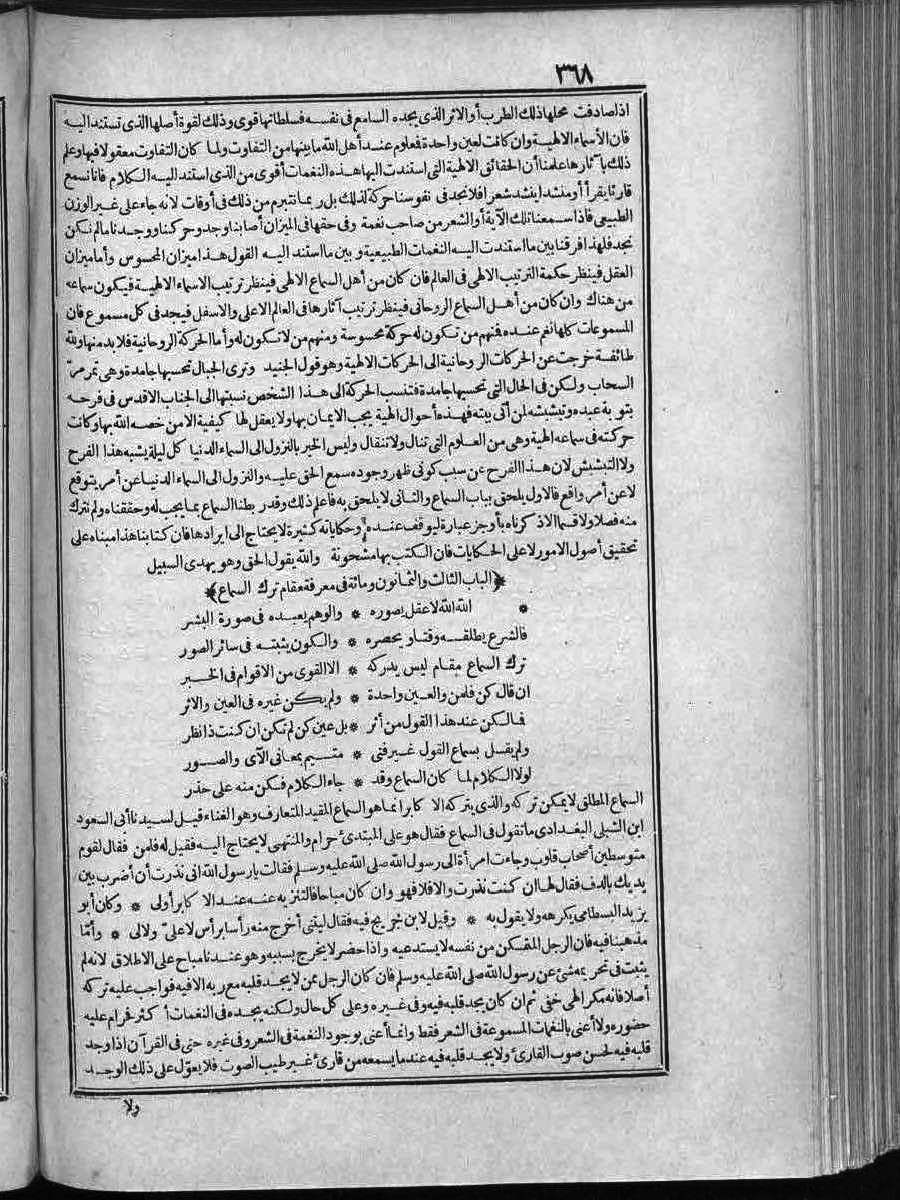 ٣٦٨
اذا صادفت محلها ذلك الطرب أو الاثر الذى يجده السامع فى نفسه فسلطانها قوى وذلك لقوة أصلها الذى تستند اليه
فان الأسماء الالهية وان كانت لعين واحدة فعلوم عند أهل الله ما بينها من التفاوت ولما كان التفاوت معقولا فيها وعلم
ذلك باآثارها علمنا أن الحقائق الالهية التى استندت اليها هذه النغمات أقوى من الذى استند اليه الكلام فانا نسمع
قارئا يقرأ أو منشدا ينشد شعرا فلا نجد فى نفوسنا حركة لذلك بل ربما نتبرم من ذلك فى أوقات لانه جاء على غير الوزن
الطبيعى فاذا سمعنا تلك الآية أو الشعر من صاحب نغمة وفى حقها فى الميزان أصابنا وجد وحركنا ووجدنا مالم نكن
نجد فلهذا فرقنا بين ما استندت اليه النغمات الطبيعية وبين ما استند اليه القول هذا ميزان المحسوس وأما ميزان
العقل فينظر حكمة الترتيب الالهى فى العالم فان كان من أهل السماع الالهى فينظر ترتيب الاسماء الالهية فيكون سماعه
من هناك وان كان من أهل السماع الروحانى فينظر ترتيب آثارها فى العالم الاعلى والاسفل فيجد فى كل مسموع فان
المسموعات كلها نغم عنده فنهم من تكون له حركة محسوسة ومنهم من لا تكون له وأما الحركة الروحانية فلا بد منها ولله
طائفة خرجت عن الحركات الروحانية الى الحركات الالهية وهو قول الجنيد وترى الجبال تحسبها جامدة وهى تمر مر
السحاب ولكن فى الحال التى تحسبها جامدة فتنسب الحركة الى هذا الشخص نسبتها الى الجناب الاقدس فى فرحه
بتوبة عبده وتبشبشه لمن أتى بيته فهذه أحوال الهية يجب الايمان بها ولا يعقل لها كيفية الا من خصه الله بها وكانت
حركته فى سماعه الهية وهى من العلوم التى تنال ولا تنقال وليس الخبر بالنزول الى السماء الدنيا كل ليلة يشبه هذا الفرح
ولا التبشبش لان هذا الفرح عن سبب كونى ظهر وجوده سمع الحق عليه والنزول الى السماء الدنيا عن أمر يتوقع
لا عن أمر واقع فالاول يلحق بباب السماع والثانى لا يلحق به فاعلم ذلك وقد ربطنا السماع بما يجب له وحققناه ولم نترك
منه فصلا ولا قسما الا ذكرناه بأوجز عبارة ليوقف عنده وحكاياته كثيرة لا يحتاج الى ايرادها فان كتابنا هذا مبناه على
تحقيق أصول الامور لا على الحكايات فان الكتب بها مشحونة والله يقول الحق وهو يهدى السبيل
﴿الباب الثالث والثمانون ومائة فى معرفة مقام ترك السماع﴾
* الله الله لا عقل يصوره * والوهم يعبده فى صورة البشر
فالشرع يطلقه وقتا ويحصره * والكون يثبته فى سائر الصور
ترك السماع مقام ليس يدركه * الا القوى من الاقوام فى الخبر
ان قال كن فلمن والعين واحدة * ولم يكن غيره فى العين والاثر
فالكن عند هذا القول من أثر * بل عين كن لم تكن ان كنت ذا نظر
ولم يقل بسماع القول غير فتى * متيم بمعانى الآى والصور
لولا الكلام لما كان السماع وقد * جاء الكلام فكن منه على حذر
السماع المطلق لا يمكن تركه والذى يتركه الا كابر انما هو السماع المقيد المتعارف وهو الغناء قيل لسيدنا أبى السعود
ابن الشبلى البغدادى ما تقول فى السماع فقال هو على المبتدئ حرام والمنتهى لا يحتاج اليه فقيل له فلمن فقال لقوم
متوسطين أصحاب قلوب وجاءت امرأة الى رسول الله صلى الله عليه وسلم فقالت يا رسول الله انى نذرت أن أضرب بين
يديك بالدف فقال لها ان كنت نذرت والا فلا فهو وان كان مباحا فالتنزه عنه عند الا كابر أولى * وكان أبو
يزيد البسطامى يكرهه ولا يقول به * وقيل لابن جريج فيه فقال ليتنى أخرج منه رأسا برأس لا علىّ ولا لى * وأمّا
مذهبنا فيه فان الرجل المتمكن من نفسه لا يستدعيه واذا حضر لا يخرج بسببه وهو عندنا مباح على الاطلاق لانه لم
يثبت فى تحريمه شئ عن رسول الله صلى الله عليه وسلم فان كان الرجل ممن لا يجد قلبه مع ربه الا فيه فواجب عليه تركه
أصلا فانه مكر الهى خفى ثم ان كان يجد قلبه فيه وفى غيره وعلى كل حال ولكنه يجده فى النغمات أكثر فحرام عليه
حضوره ولا أعنى بالنغمات المسموعة فى الشعر فقط وانما أعنى بوجود النغمة فى الشعر وفى غيره حتى فى القرآن اذا وجد
قلبه فيه لحسن صوت القارئ ولا يجد قلبه فيه عندما يسمعه من قارئ غير طيب الصوت فلا يعوّل على ذلك الوجد
ولا